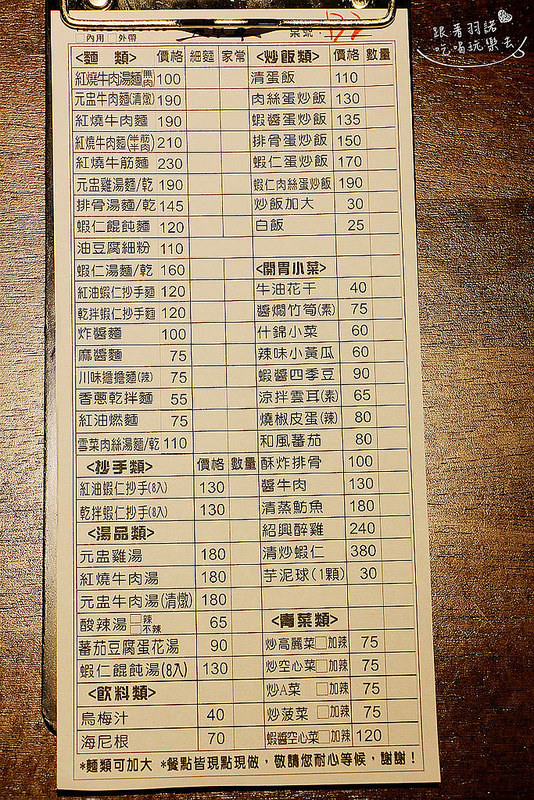 內用 外帶
桌號：
跟著羽諾
吃喝玩樂去
<麵 類> 價格 細麵 家常
紅燒牛肉湯麵(無肉) 100
元盅牛肉麵(清燉) 190
紅燒牛肉麵 190
紅燒牛肉麵(半筋半肉) 210
紅燒牛筋麵 230
元盅雞湯麵/乾 190
排骨湯麵/乾 145
蝦仁餛飩麵 120
油豆腐細粉 110
蝦仁湯麵/乾 160
紅油蝦仁抄手麵 120
乾拌蝦仁抄手麵 120
炸醬麵 100
麻醬麵 75
川味擔擔麵(辣) 75
香蔥乾拌麵 55
紅油燃麵 75
雪菜肉絲湯麵/乾 110
<抄手類> 價格 數量
紅油蝦仁抄手(8入) 130
乾拌蝦仁抄手(8入) 130
<湯品類>
元盅雞湯 180
紅燒牛肉湯 180
元盅牛肉湯(清燉) 180
酸辣湯 □辣 □不辣 65
蕃茄豆腐蛋花湯 90
蝦仁餛飩湯(8入) 130
<飲料類>
烏梅汁 40
海尼根 70
<炒飯類> 價格 數量
清蛋飯 110
肉絲蛋炒飯 130
蝦醬蛋炒飯 135
排骨蛋炒飯 150
蝦仁蛋炒飯 170
蝦仁肉絲蛋炒飯 190
炒飯加大 30
白飯 25
<開胃小菜>
牛油花干 40
醬燜竹筍(素) 75
什錦小菜 60
辣味小黃瓜 60
蝦醬四季豆 90
涼拌雲耳(素) 65
燒椒皮蛋(辣) 80
和風蕃茄 80
酥炸排骨 100
醬牛肉 130
清蒸魴魚 180
紹興醉雞 240
清炒蝦仁 380
芋泥球(1顆) 30
<青菜類>
炒高麗菜 □加辣 75
炒空心菜 □加辣 75
炒A菜 □加辣 75
炒菠菜 □加辣 75
蝦醬空心菜 □加辣 120
*麵類可加大 *餐點皆現點現做，敬請您耐心等候，謝謝！